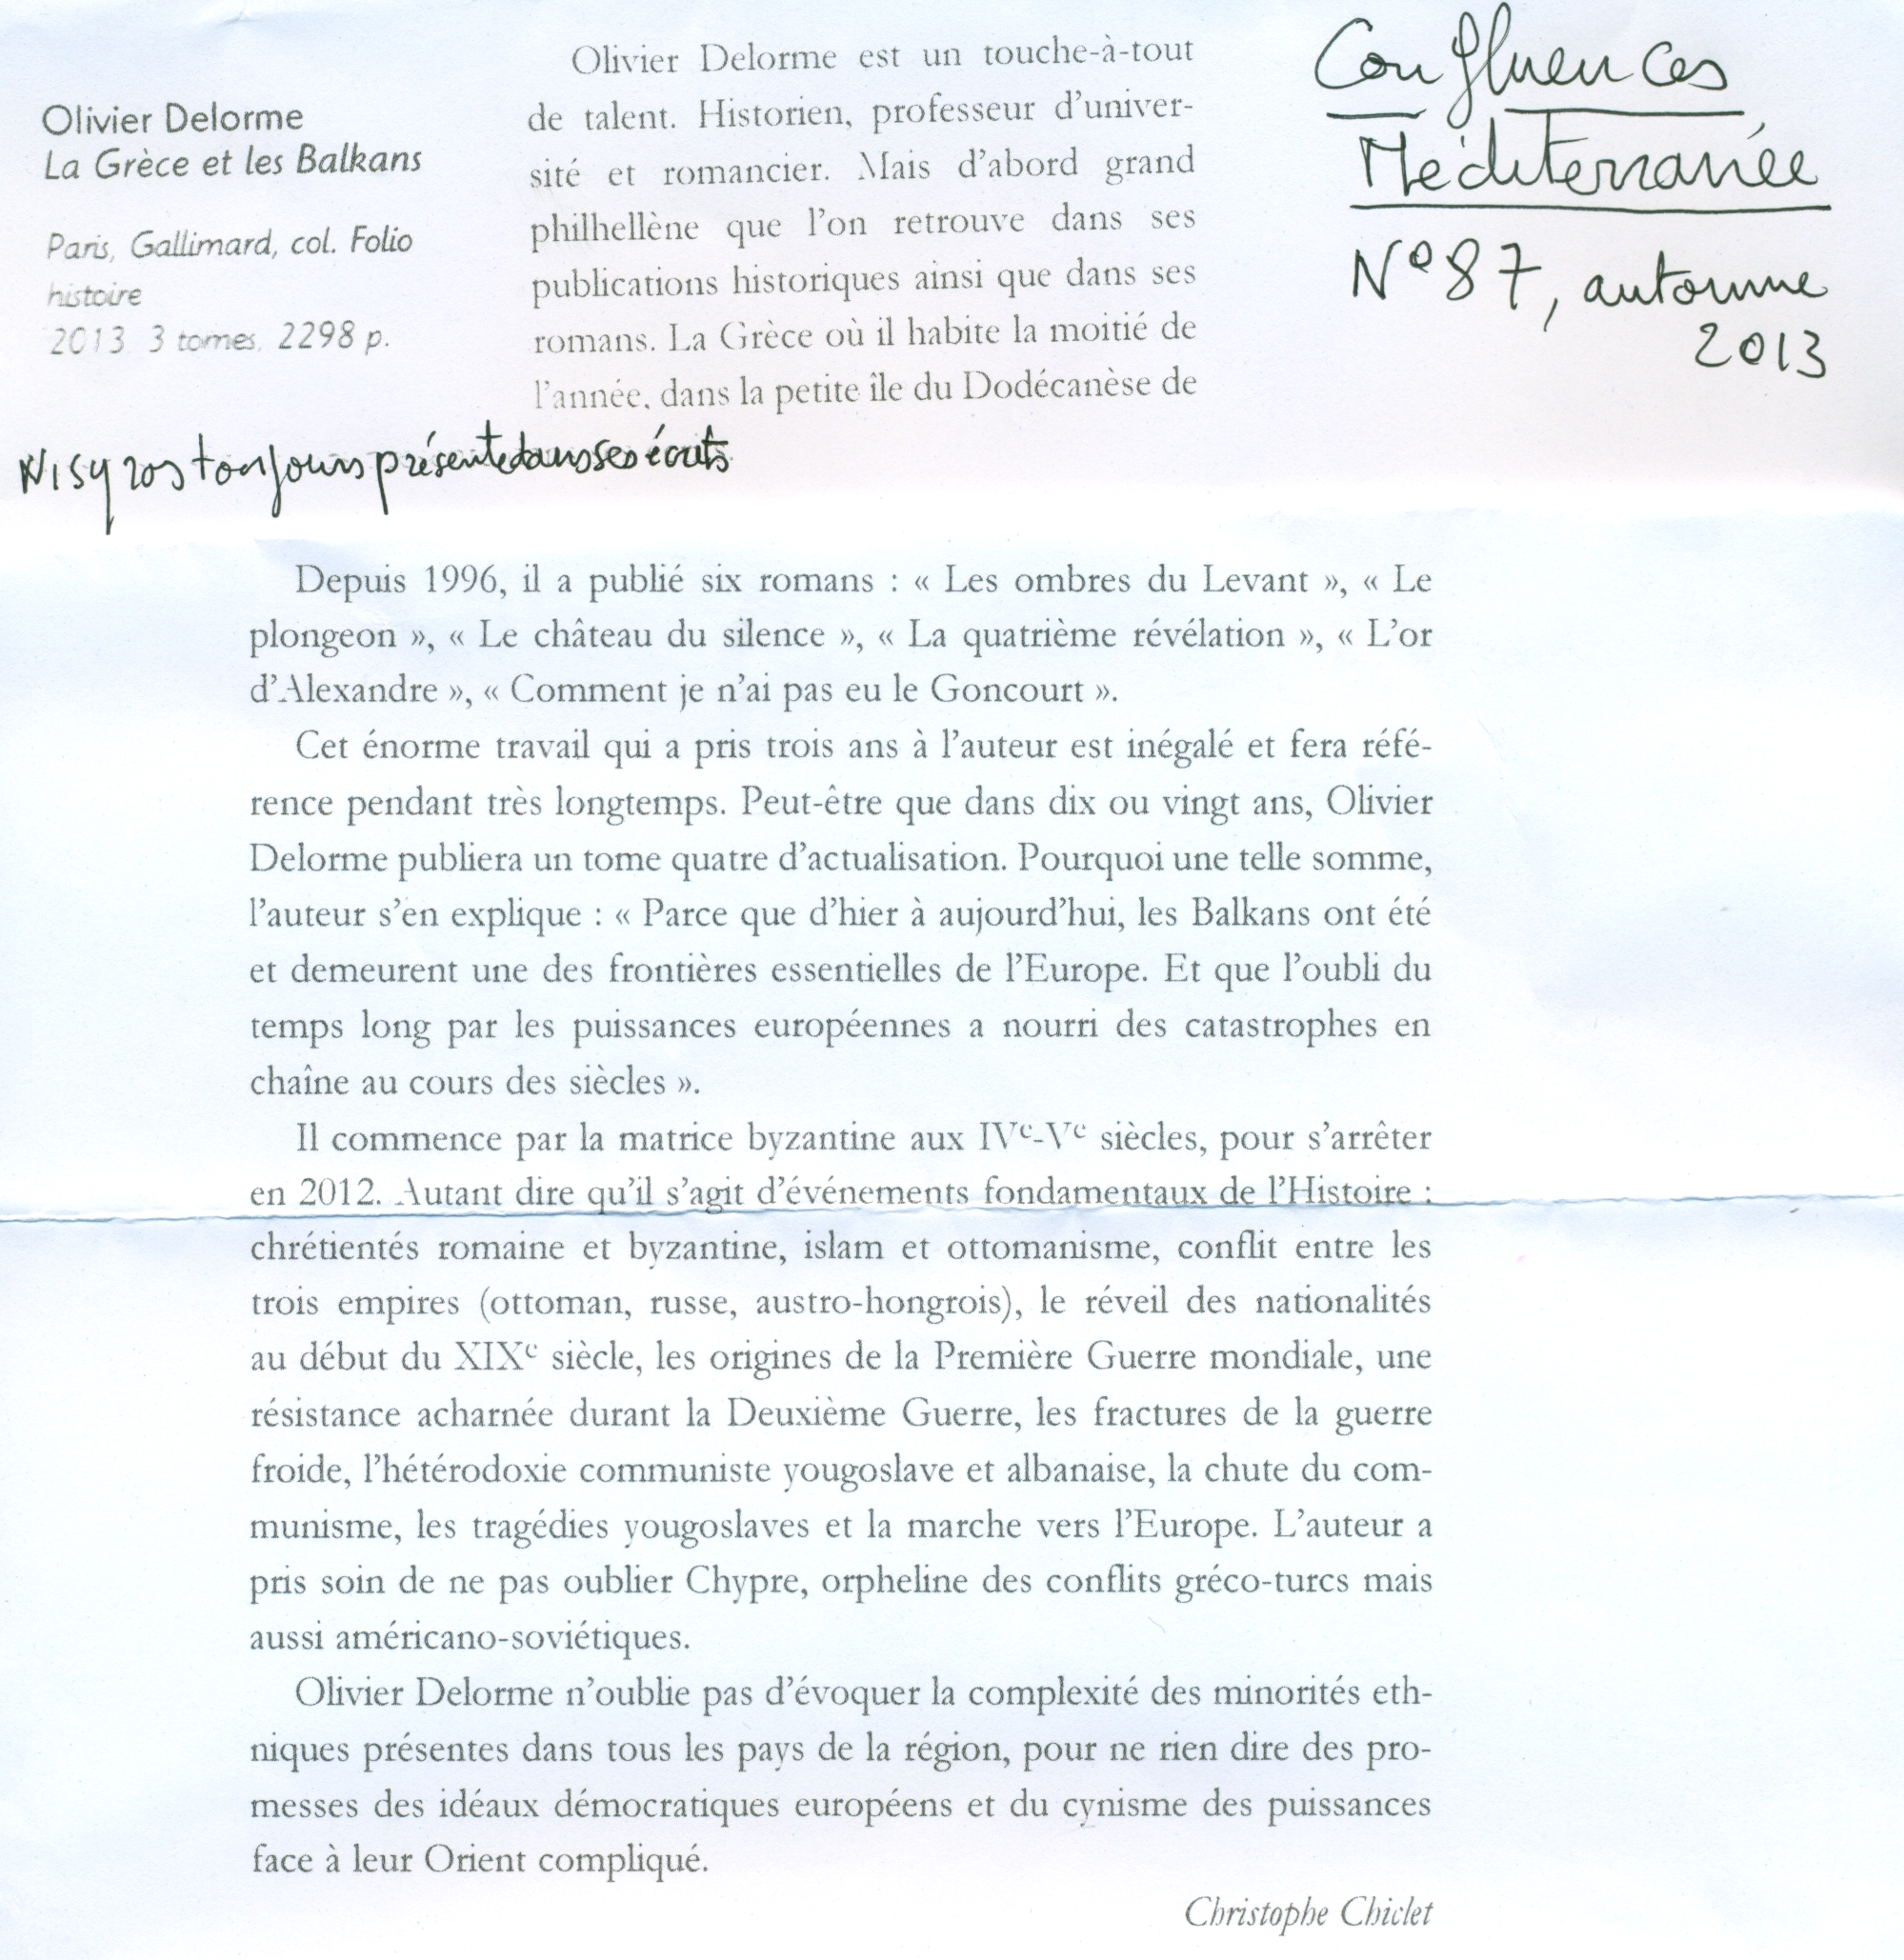 Olivier Delorme
La Grèce et les Balkans
Paris, Gallimard, col. Folio
histoire
2013. 3 tomes, 2298 p.
Olivier Delorme est un touche-à-tout
de talent. Historien, professeur d'univer-
sité et romancier. Mais d'abord grand
philhellène que l'on retrouve dans ses
publications historiques ainsi que dans ses
romans. La Grèce où il habite la moitié de
l'année, dans la petite île du Dodécanèse de
Nisyros toujours présente dans ses écrits
Confluences
Méditerranée
N° 87, automne
2013
Depuis 1996, il a publié six romans : « Les ombres du Levant », « Le
plongeon », « Le château du silence », « La quatrième révélation », « L'or
d'Alexandre », « Comment je n'ai pas eu le Goncourt ».
Cet énorme travail qui a pris trois ans à l'auteur est inégalé et fera réfé-
rence pendant très longtemps. Peut-être que dans dix ou vingt ans, Olivier
Delorme publiera un tome quatre d'actualisation. Pourquoi une telle somme,
l'auteur s'en explique : « Parce que d'hier à aujourd'hui, les Balkans ont été
et demeurent une des frontières essentielles de l'Europe. Et que l'oubli du
temps long par les puissances européennes a nourri des catastrophes en
chaîne au cours des siècles ».
Il commence par la matrice byzantine aux IVe-Ve siècles, pour s'arrêter
en 2012. Autant dire qu'il s'agit d'événements fondamentaux de l'Histoire :
chrétientés romaine et byzantine, islam et ottomanisme, conflit entre les
trois empires (ottoman, russe, austro-hongrois), le réveil des nationalités
au début du XIXe siècle, les origines de la Première Guerre mondiale, une
résistance acharnée durant la Deuxième Guerre, les fractures de la guerre
froide, l'hétérodoxie communiste yougoslave et albanaise, la chute du com-
munisme, les tragédies yougoslaves et la marche vers l'Europe. L'auteur a
pris soin de ne pas oublier Chypre, orpheline des conflits gréco-turcs mais
aussi américano-soviétiques.
Olivier Delorme n'oublie pas d'évoquer la complexité des minorités eth-
niques présentes dans tous les pays de la région, pour ne rien dire des pro-
messes des idéaux démocratiques européens et du cynisme des puissances
face à leur Orient compliqué.
Christophe Chiclet